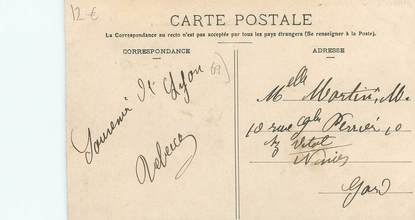 12 €
CARTE POSTALE
La Correspondance au recto n'est pas acceptée par tous les pays étrangers (Se renseigner à la Poste).
CORRESPONDANCE
ADRESSE
Souvenir de Lyon
69)
Melle Martin, M.
10 rue Perrier, 10
Nimes
Gard